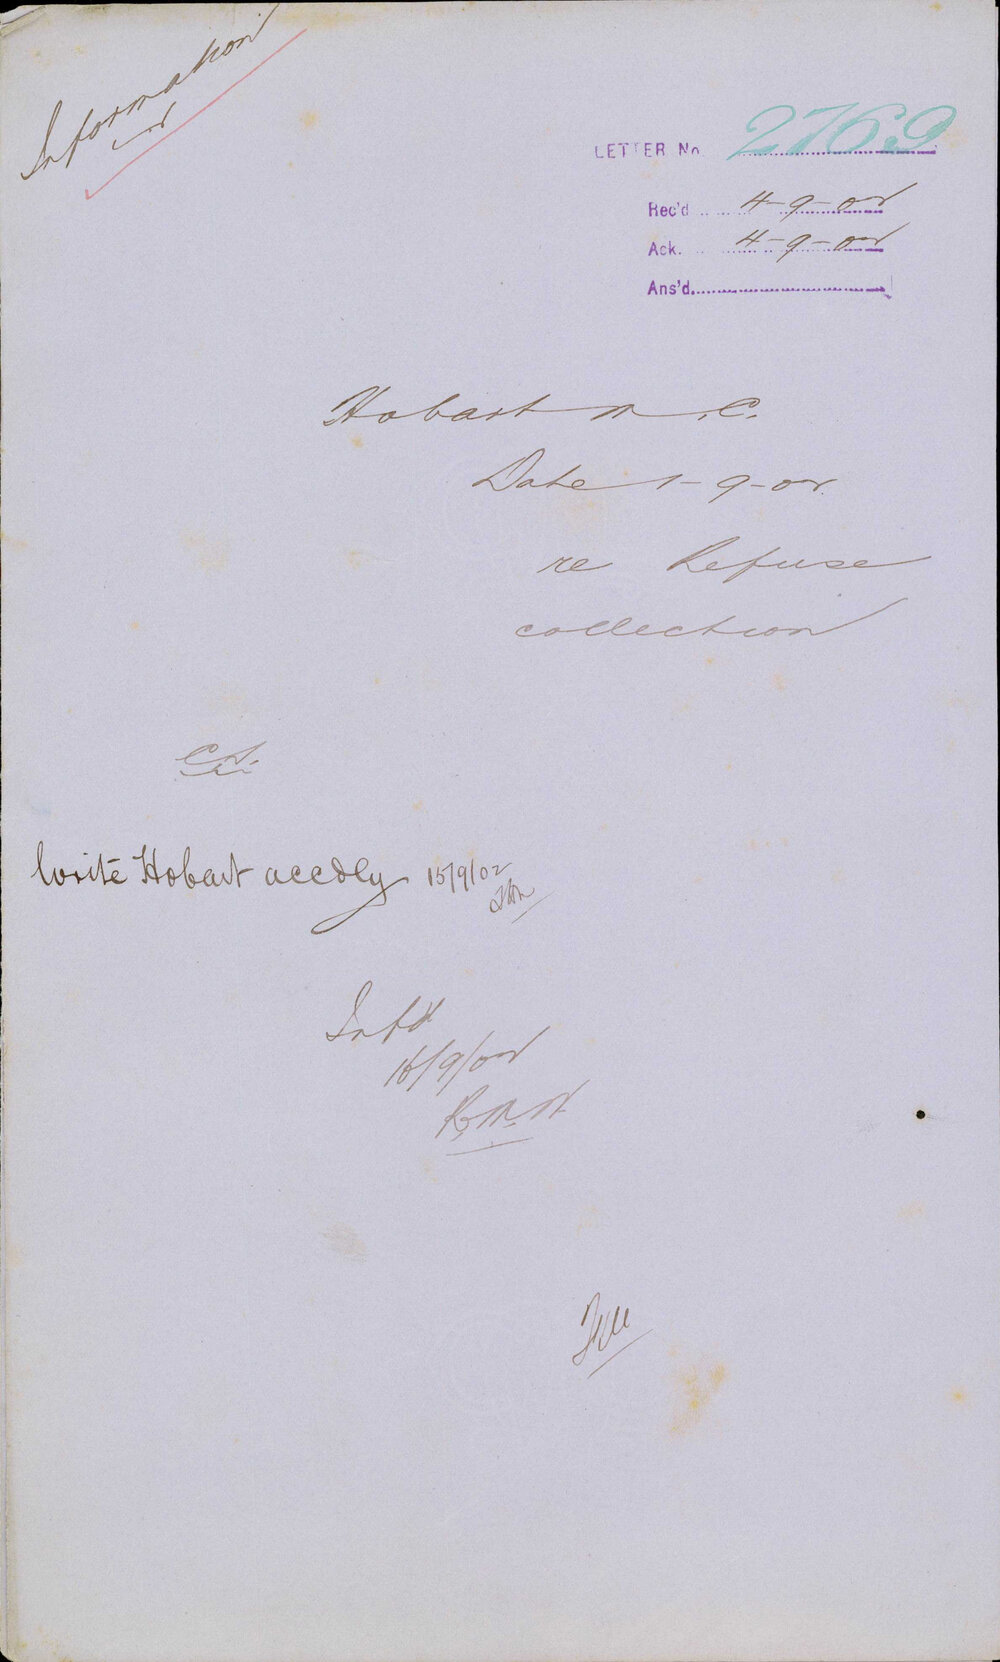 Information
LETTER No. 2769
Rec'd 4-9-02
Ack. 4-9-02
Ans'd.
Hobart M.C.
Date 1-9-02
re Refuse
collection
Write Hobart accdly 15/9/02
Inf'd
16/9/02